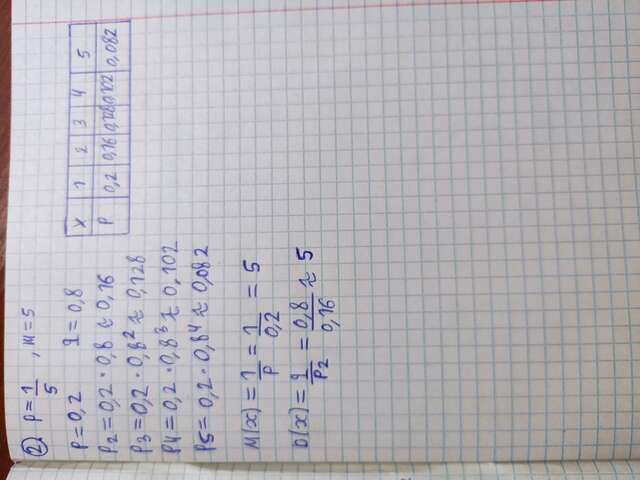 2) P=1/5, m=5
P=0,2 q=0,8
P2=0,2·0,8≈0,16
P3=0,2·0,8²≈0,128
P4=0,2·0,8³≈0,102
P5=0,2·0,8⁴≈0,082
X 1 2 3 4 5
P 0,2 0,16 0,128 0,102 0,082
M(x)=1/P=1/0,2=5
D(x)=q/P2=0,8/0,16≈5